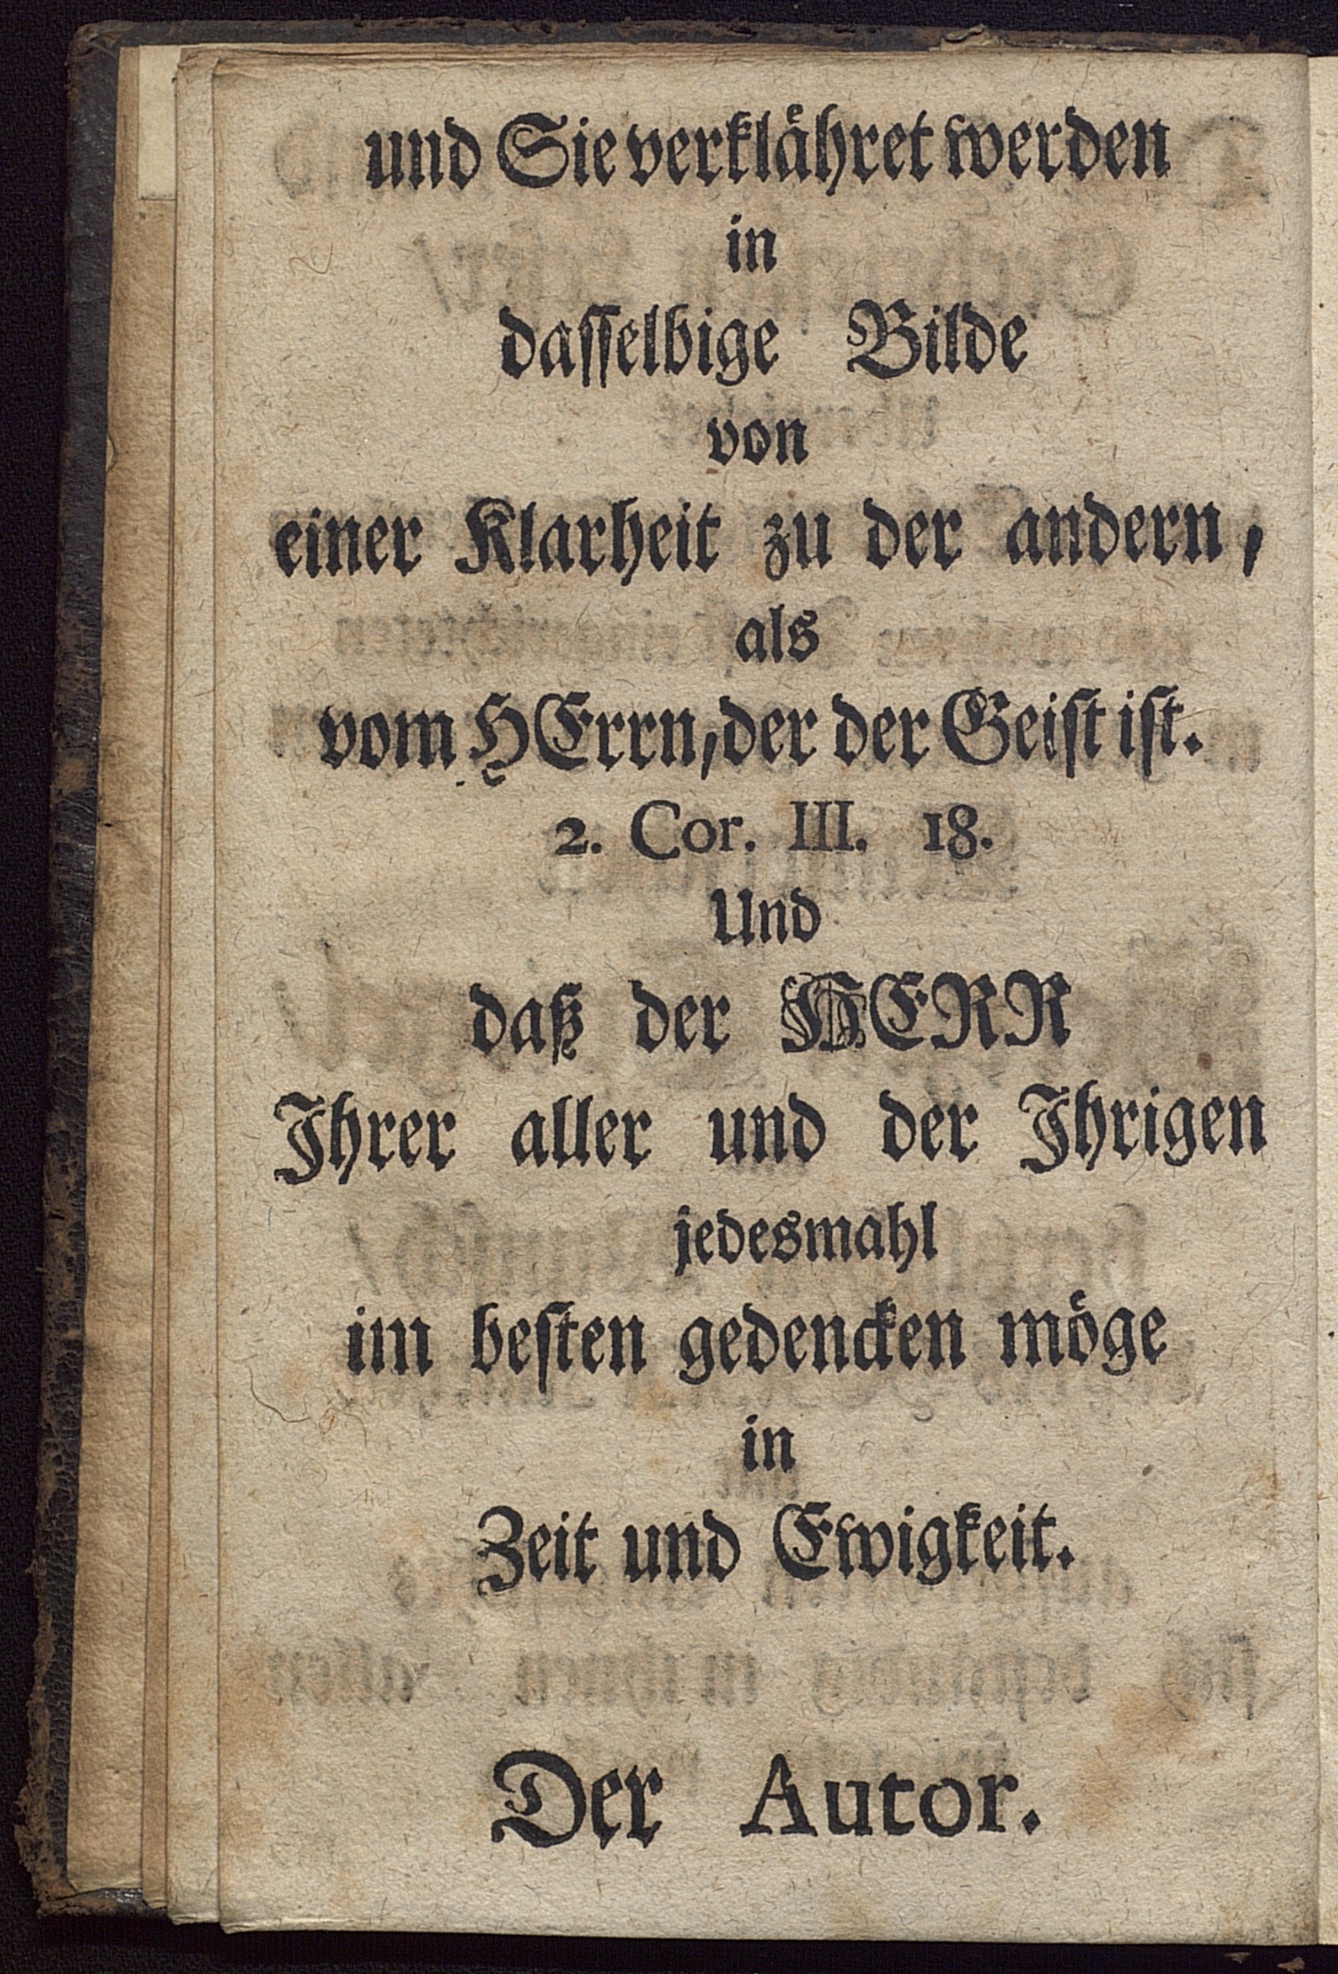 und Sie verklähret werden
in
dasselbige Bilde
von
einer Klarheit zu der andern,
als
vom HErrn, der der Geist ist.
2. Cor. III. 18.
Und
daß der HERR
Ihrer aller und der Ihrigen
jedesmahl
im besten gedencken möge
in
Zeit und Ewigkeit.
Der Autor.